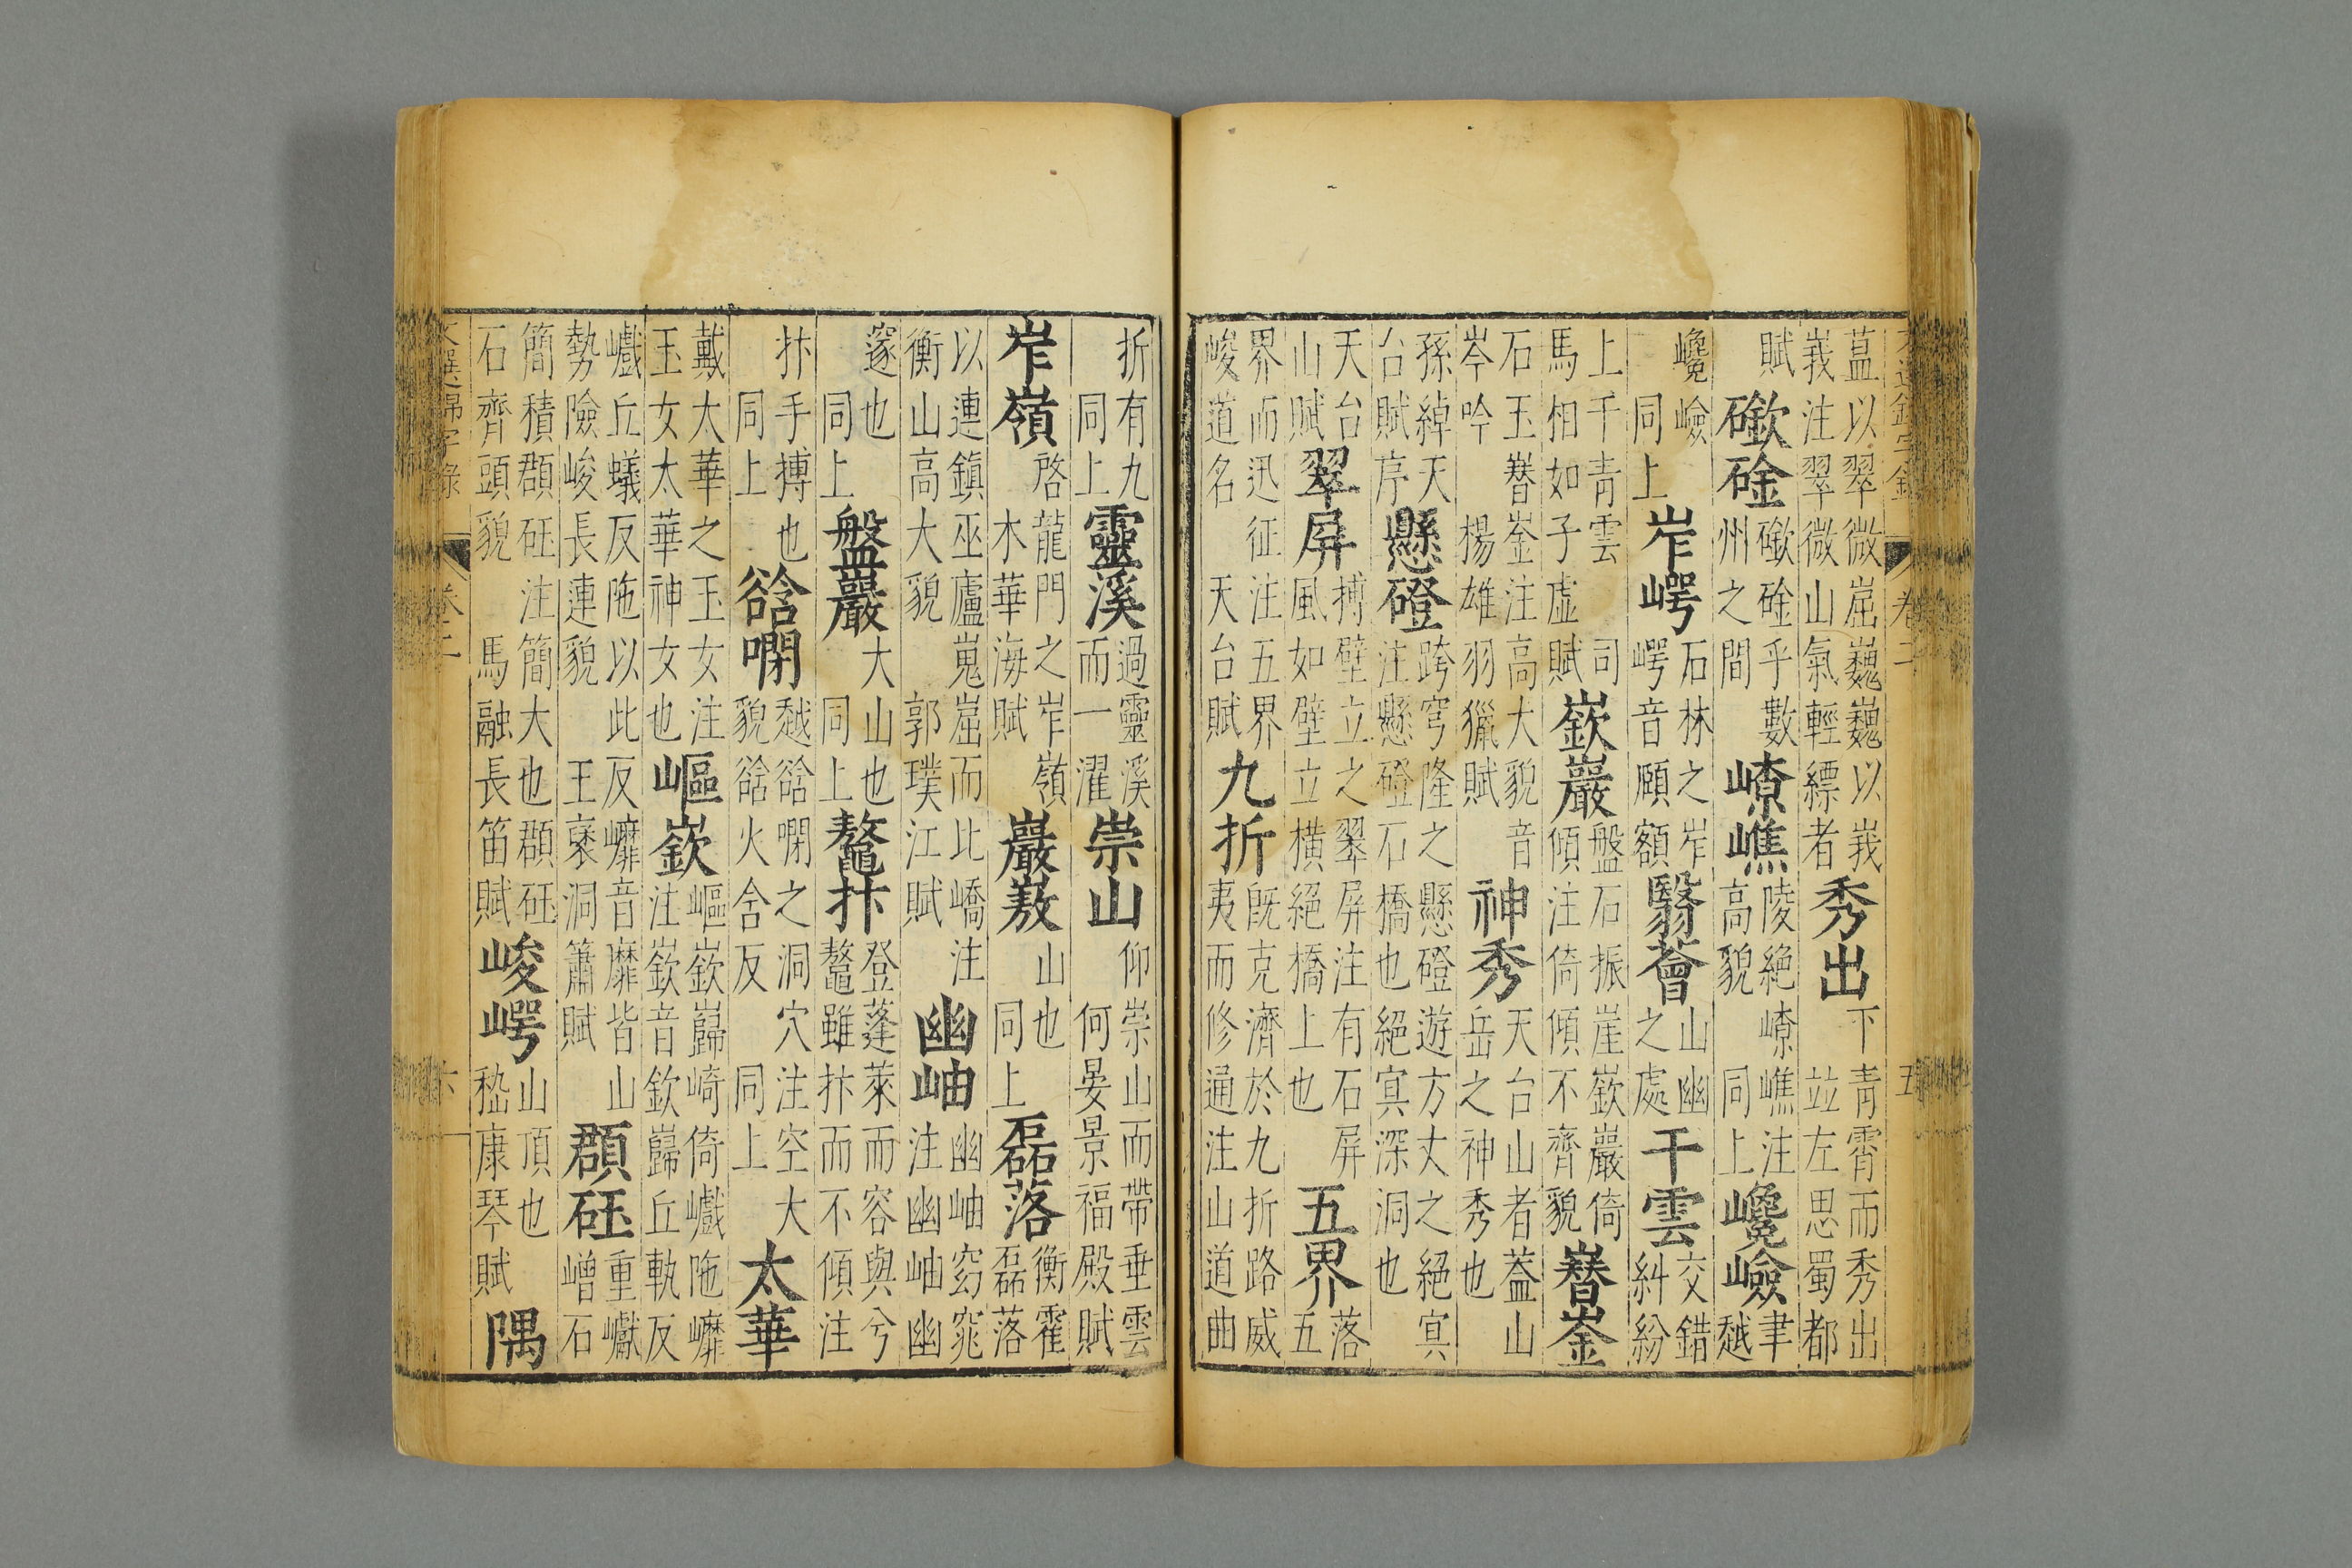 卷二 五
蒀以翠微崫巍巍以峩峩注翠微山氣輕縹者 秀出 下青霄而秀出竝左思蜀都
賦 乎數州之間 嶚嶕 陵絕嶚嶕注高貌 同上 巉嶮 聿越
巉嶮 同上 岝崿 石林之岝崿音顧額 翳薈 山幽之處 干雲 交錯糾紛
上千青雲 司馬相如子虛賦 嶔巖 盤石振崖嶔巖倚傾注倚傾不齊貌 嶜崟
石玉嶜崟注高大貌音岑吟 揚雄羽獵賦 神秀 天台山者蓋山岳之神秀也
孫綽天台賦序 懸磴 跨穹隆之懸磴遊方丈之絕冥注懸磴石橋也絕冥深洞也
天台山賦 翠屏 搏壁立之翠屏注有石屏風如壁立橫絕橋上也 五界 落五
界而迅征注五界峻道名 天台賦 九折 既克濟於九折路威夷而修通注山道曲
折有九 同上 靈溪 過靈溪而一濯 崇山 仰崇山而帶垂雲 何晏景福殿賦
岝嶺 啓龍門之岝嶺 木華海賦 巖嶅 山也 同上 磊落 衡霍磊落
以連鎮巫廬嵬崫而比嶠注衡山高大貌 郭璞江賦 幽岫 幽岫窈窕注幽岫幽
邃也 同上 盤巖 大山也 同上 鼇抃 登蓬萊而容與兮鼇雖抃而不傾注
抃手搏也 同上 谽 越谽之洞穴注空大貌谽火含反 同上 太華
戴太華之玉女注玉女太華神女也 嶇嶔 嶇嶔巋崎倚巇陁㠧注嶔音欽巋丘軌反
巇丘蟻反陁以此反㠧音靡皆山勢險峻長連貌 王褒洞簫賦 頵砡 重巘增石
簡積頵砡注簡大也頵砡石齊頭貌 馬融長笛賦 峻崿 山頂也 嵇康琴賦 隅
文選錦字錄 卷二 六